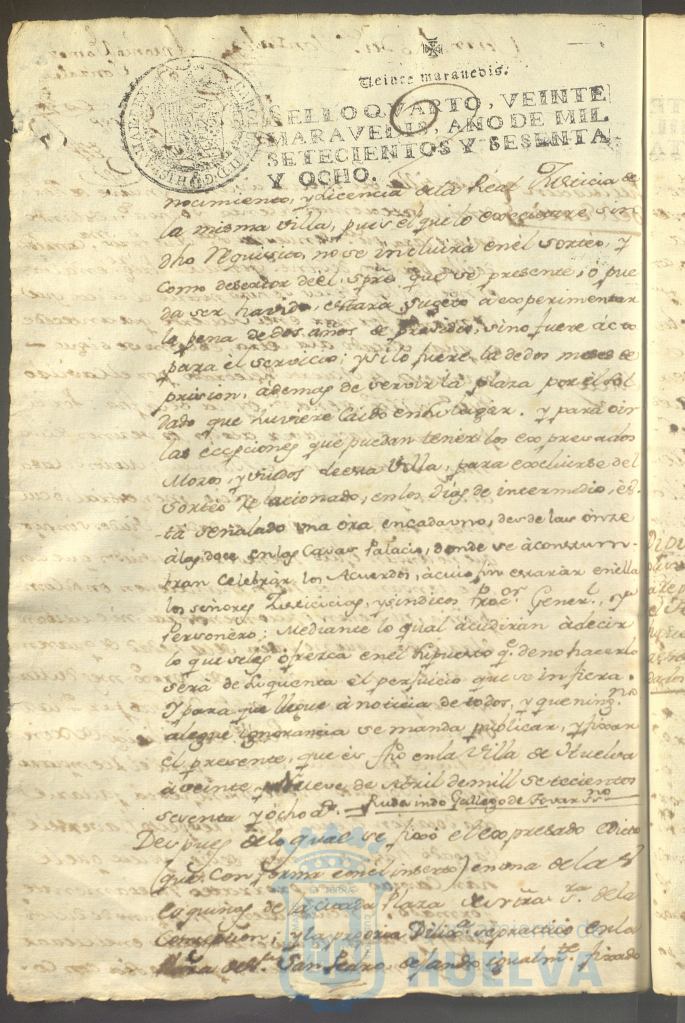 Veinte maravedis.
SELLO QVARTO, VEINTE
MARAVEDIS, AÑO DE MIL
SETECIENTOS Y SESENTA
Y OCHO.
nocimiento, y licencia de la Real Justicia de
la misma villa, pues el que lo executare sin
dho requisito, no se incluirá en el sorteo, y
como desertor de él, spre. que se presente, ó pue
da ser havido, estará sugeto á experimentar
la pena de dos años de presidio, sino fuere ácto
para él servicio; y si lo fuere la de dos meses de
prision, ádemas de servir la plaza por él sol
dado que huviere caido en su lugar. y para oir
las ecepsiones que puedan tener los expresados
Mozos, y viudos de esta villa, para excluirse del
sorteo relacionado, en los dias de intermedio, és
tá señalado una óra en cada uno, desde las ónze
á las doce, en las Casas Palacio, donde se ácostum-
bran celebrar los Acuerdos, á cuio fin estarán en ella
los señores Justicias, y sindicos Procor. Generl., y
Personéro; Mediante lo qual ácudirán á decir
lo que se les ófrezca en él supuesto qe. de no hacerlo
será de su quenta él perjuicio que se infiera.
Y para que llegue á noticia de todos, y que ningno.
alegue ignorancia se manda publicar, y fixar
él presente, que és fho en la Villa de Huelva
á veinte y nueve de Abril de mill setecientos
sesenta y ocho as. Rudesindo Gallego de Tovar
Despues de lo qual se fixó el expresado edicto
(que conforma con el inserto) en una de las
esquinas de la citada Plaza de ntra. sra. de la
Concepcion; y la propia Diliga. se practicó en la
Plaza de sr. San Pedro, dejando igualmte. fixado
HUELVA